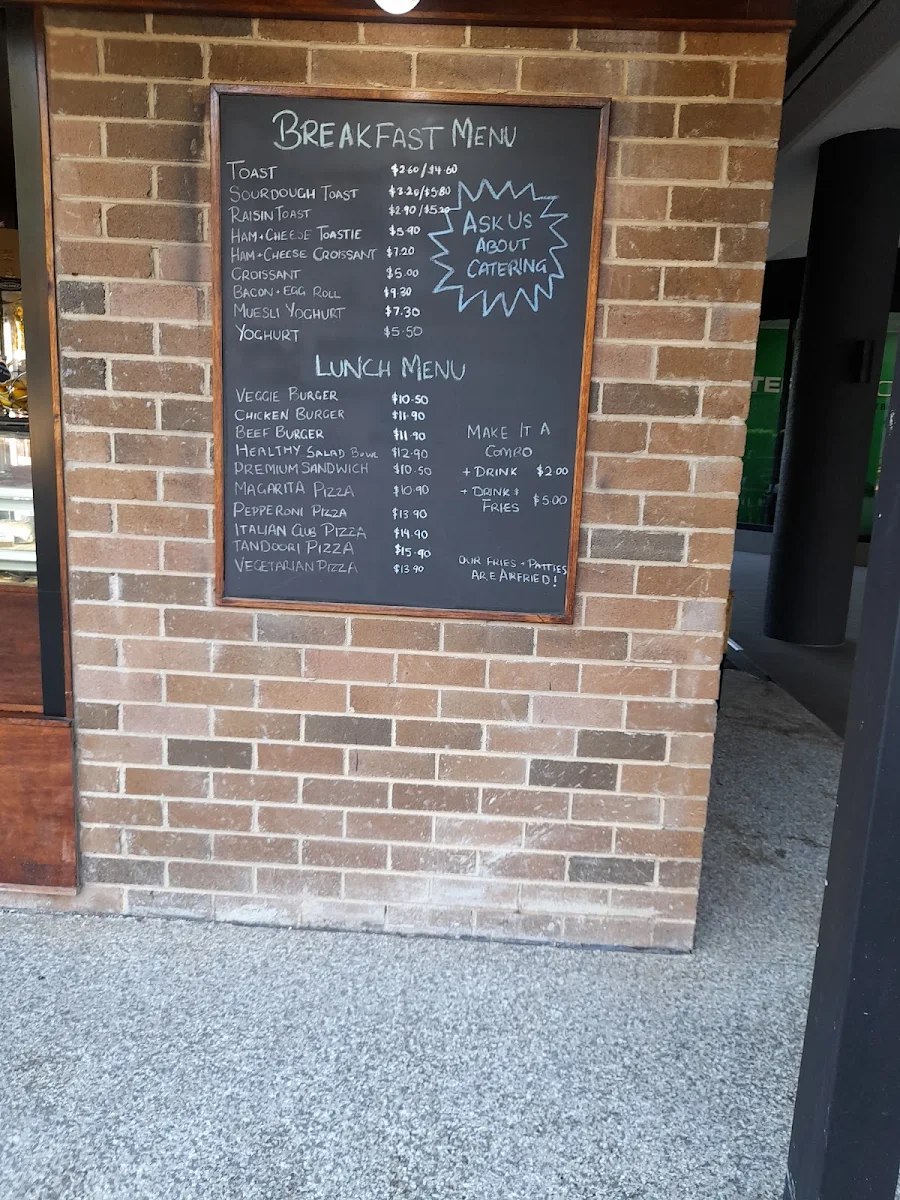 BREAKFAST MENU
TOAST $2.60/$4.60
SOURDOUGH TOAST $3.20/$5.80
RAISIN TOAST $2.90/$5.20
HAM+CHEESE TOASTIE $5.90
HAM+CHEESE CROISSANT $7.20
CROISSANT $5.00
BACON+EGG ROLL $9.30
MUESLI YOGHURT $7.30
YOGHURT $5.50
ASK US
ABOUT
CATERING
LUNCH MENU
VEGGIE BURGER $10.50
CHICKEN BURGER $11.90
BEEF BURGER $11.90
HEALTHY SALAD BOWL $12.90
PREMIUM SANDWICH $10.50
MAGARITA PIZZA $10.90
PEPPERONI PIZZA $13.90
ITALIAN CLUB PIZZA $14.90
TANDOORI PIZZA $15.90
VEGETARIAN PIZZA $13.90
MAKE IT A
COMBO
+ DRINK $2.00
+ DRINK+
FRIES $5.00
OUR FRIES + PATTIES
ARE AIRFRIED!
TE